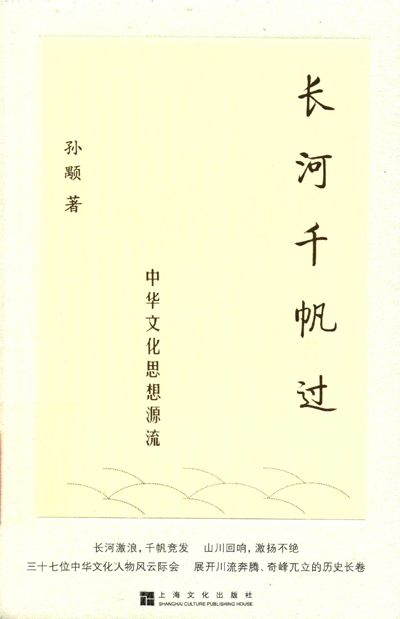 长河千帆过
孙颙 著
中华文化思想源流
长河激浪，千帆竞发 山川回响，激扬不绝
三十七位中华文化人物风云际会 展开川流奔腾、奇峰兀立的历史长卷
上海文化出版社
SHANGHAI CULTURE PUBLISHING HOUSE